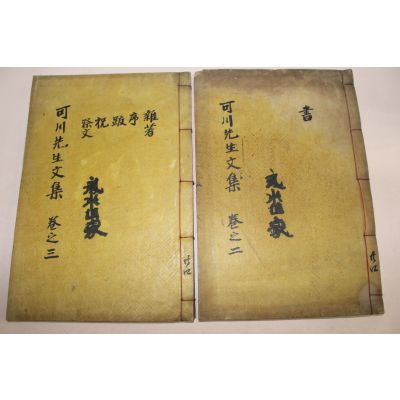 書
可川先生文集 卷之二
共四
雜著
序
跋
祝
祭文
可川先生文集 卷之三
共四